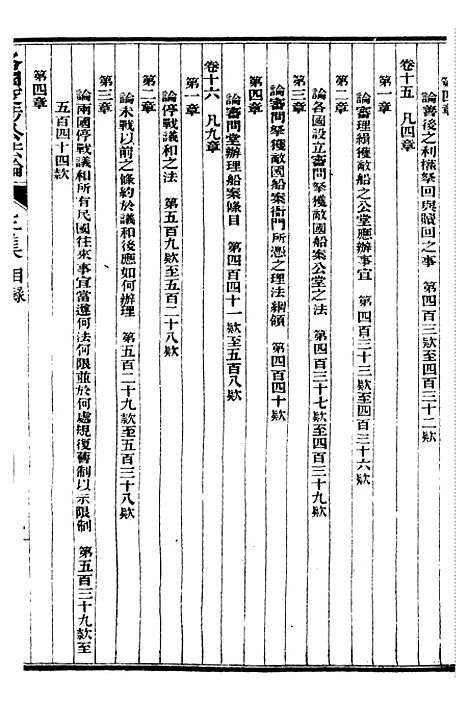 第四章
論善後之利擒拏回與贖回之事　第四百三欵至四百三十二欵
卷十五　凡四章
第一章
論審理緝獲敵船之公堂應辦事宜　第四百三十三欵至四百三十六欵
第二章
論各國設立審問拏獲敵國船案公堂之法　第四百三十七欵至四百三十九欵
第三章
論審問拏獲敵國船案衙門所憑之理法綱領　第四百四十欵
論審問堂辦理船案條目　第四百四十一欵至五百八欵
卷十六　凡九章
第一章
論停戰議和之法　第五百九欵至五百二十八欵
第二章
論未戰以前之條約於議和後應如何辦理　第五百二十九欵至五百三十八欵
第三章
論兩國停戰議和所有民國往來事宜當遵何法何限並於何處規復舊制以示限制　第五百三十九欵至
五百四十四欵
第四章
各國交涉公法論
三集目錄